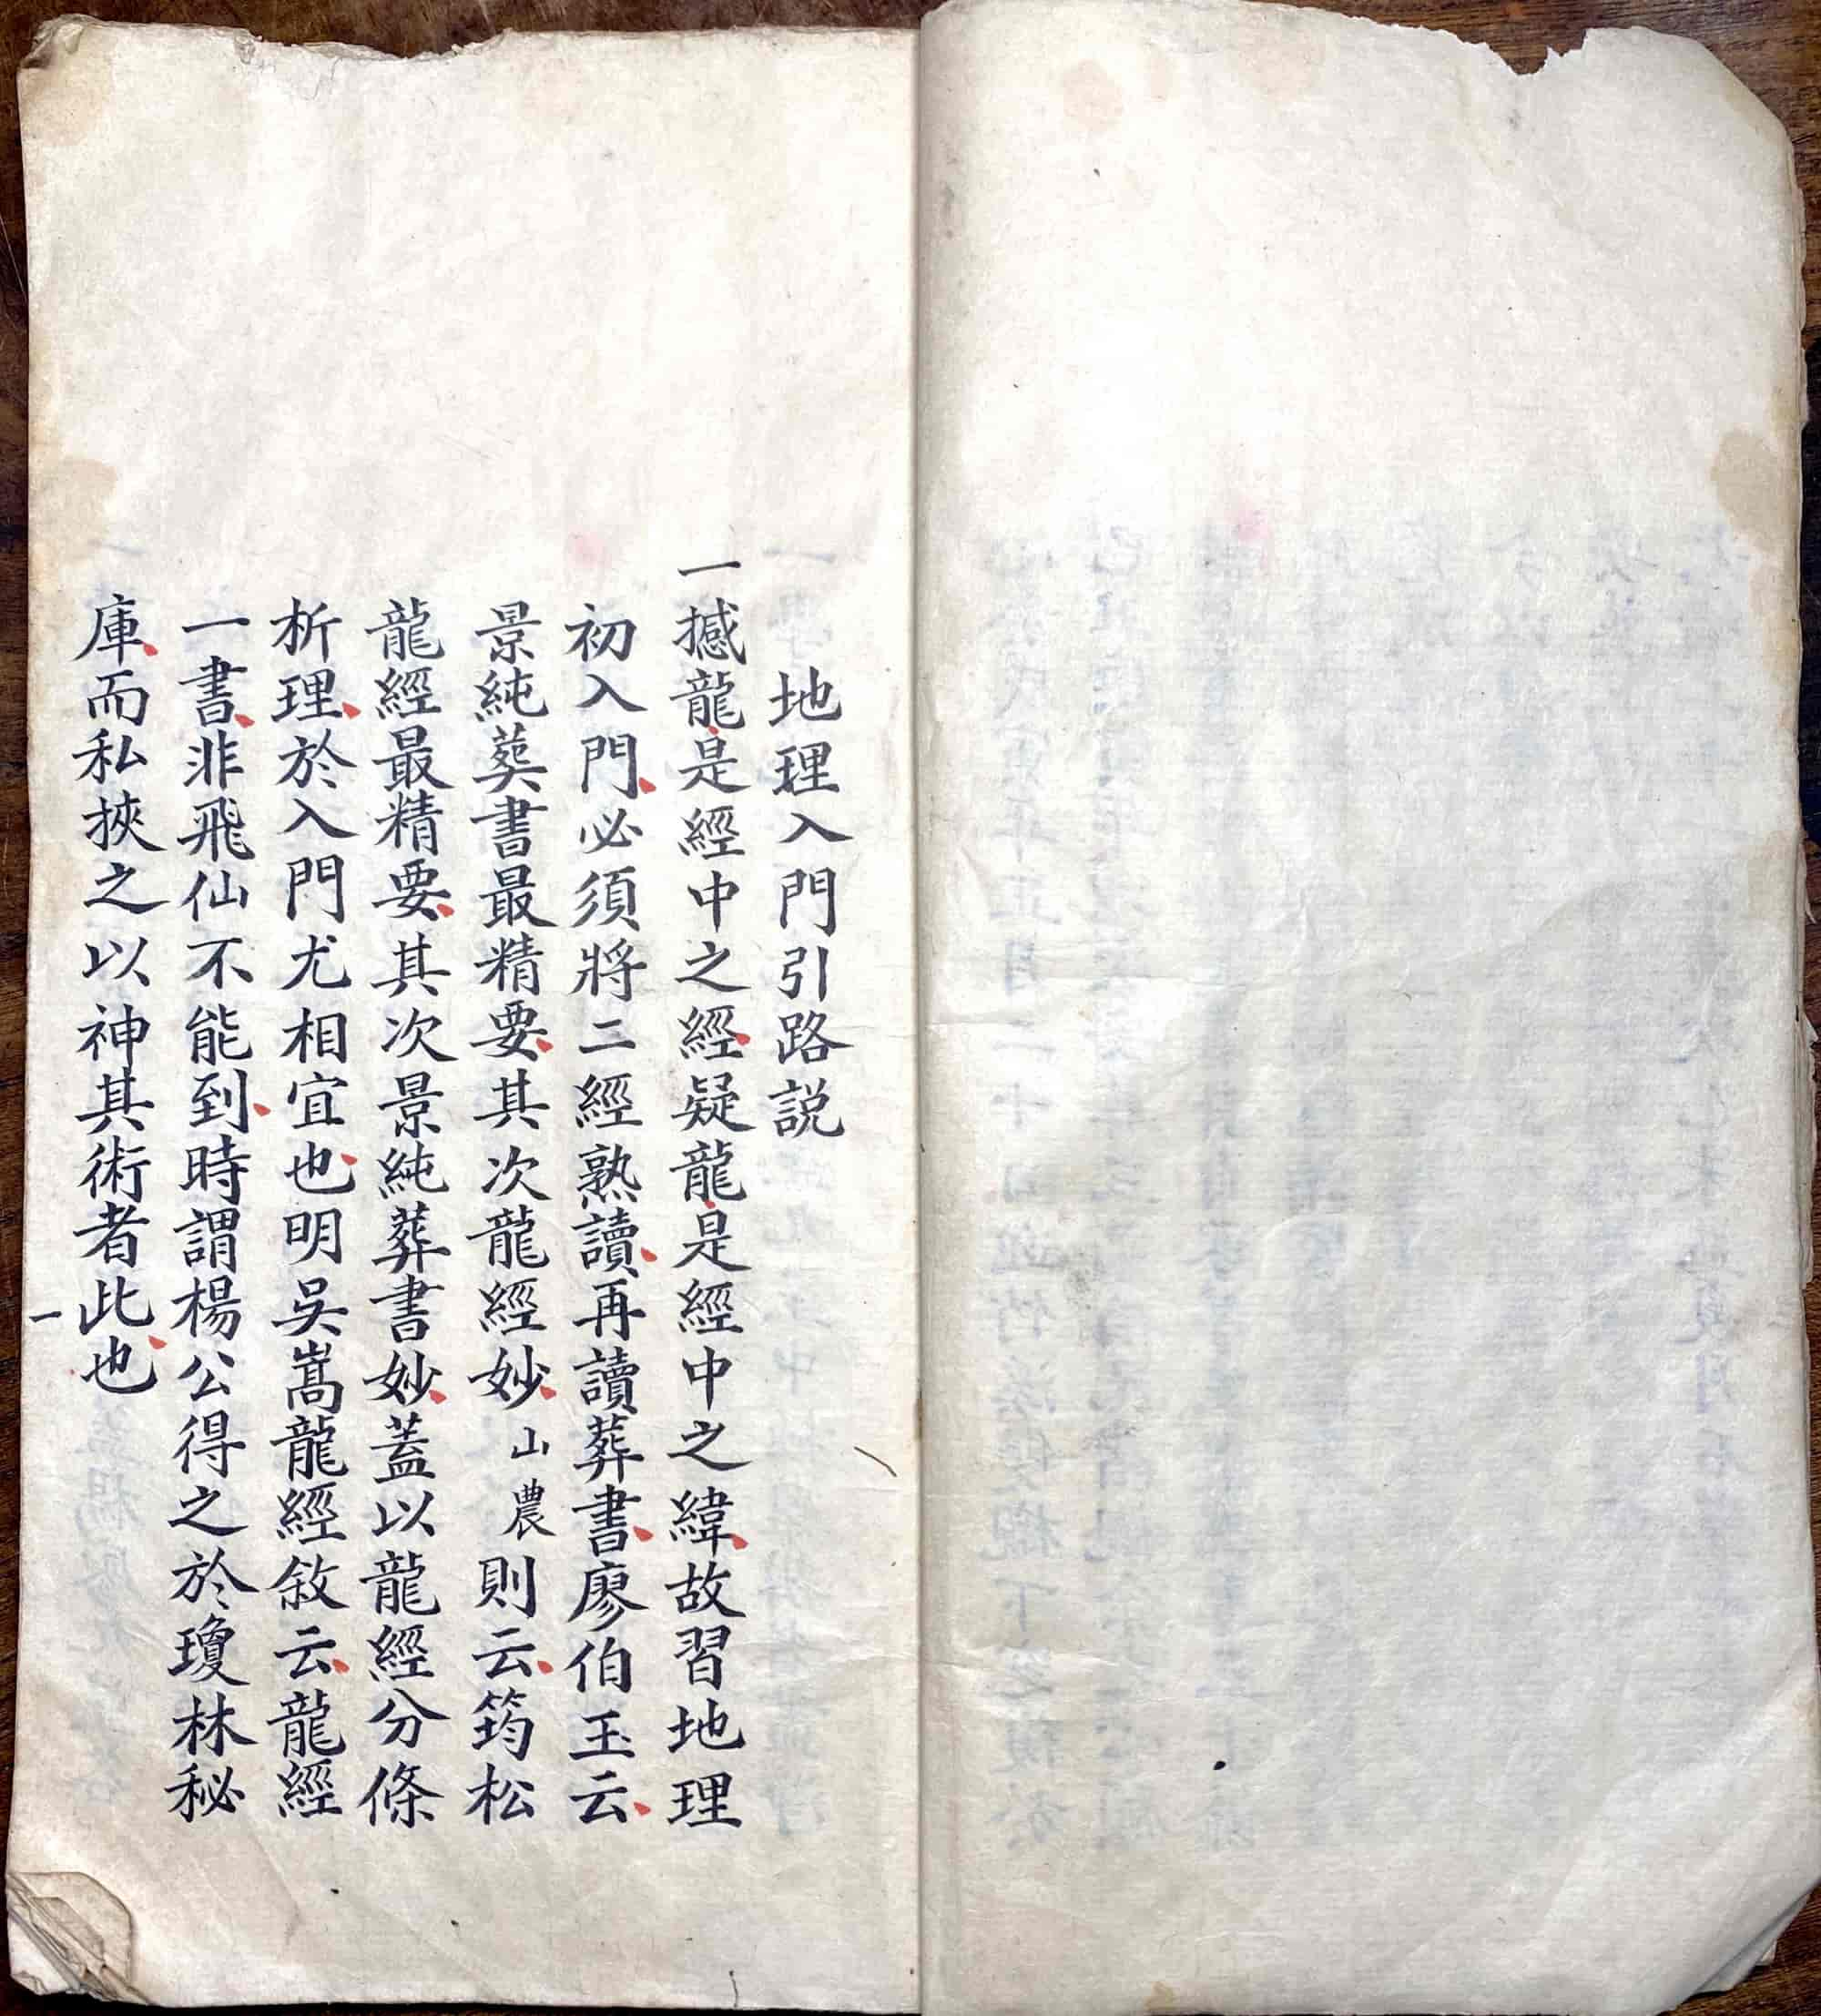 地理入門引路説
一撼龍是經中之經疑龍是經中之緯故習地理
初入門必須將二經熟讀再讀葬書廖伯玉云
景純葬書最精要其次龍經妙山農則云筠松
龍經最精要其次景純葬書妙蓋以龍經分條
析理於入門尤相宜也明吳嵩龍經敘云龍經
一書非飛仙不能到時謂楊公得之於瓊林秘
庫而私挾之以神其術者此也
一